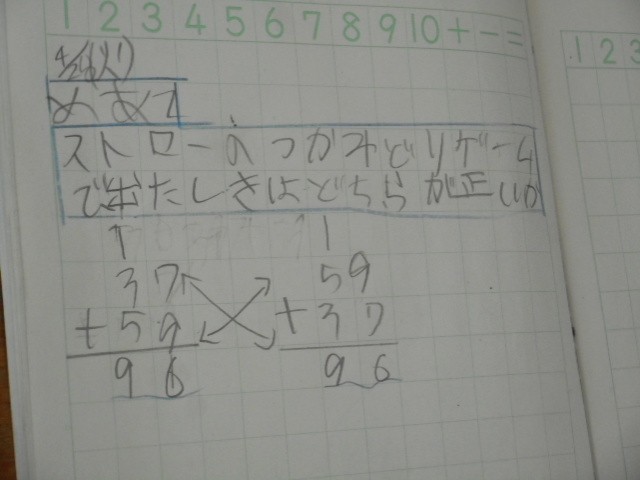 1 2 3 4 5 6 7 8 9 10 + - =
1 2 3
めあて
ストローのつかみどりゲーム
で出たしきはどちらが正しい
1 1
37 59
+59 +37
96 96